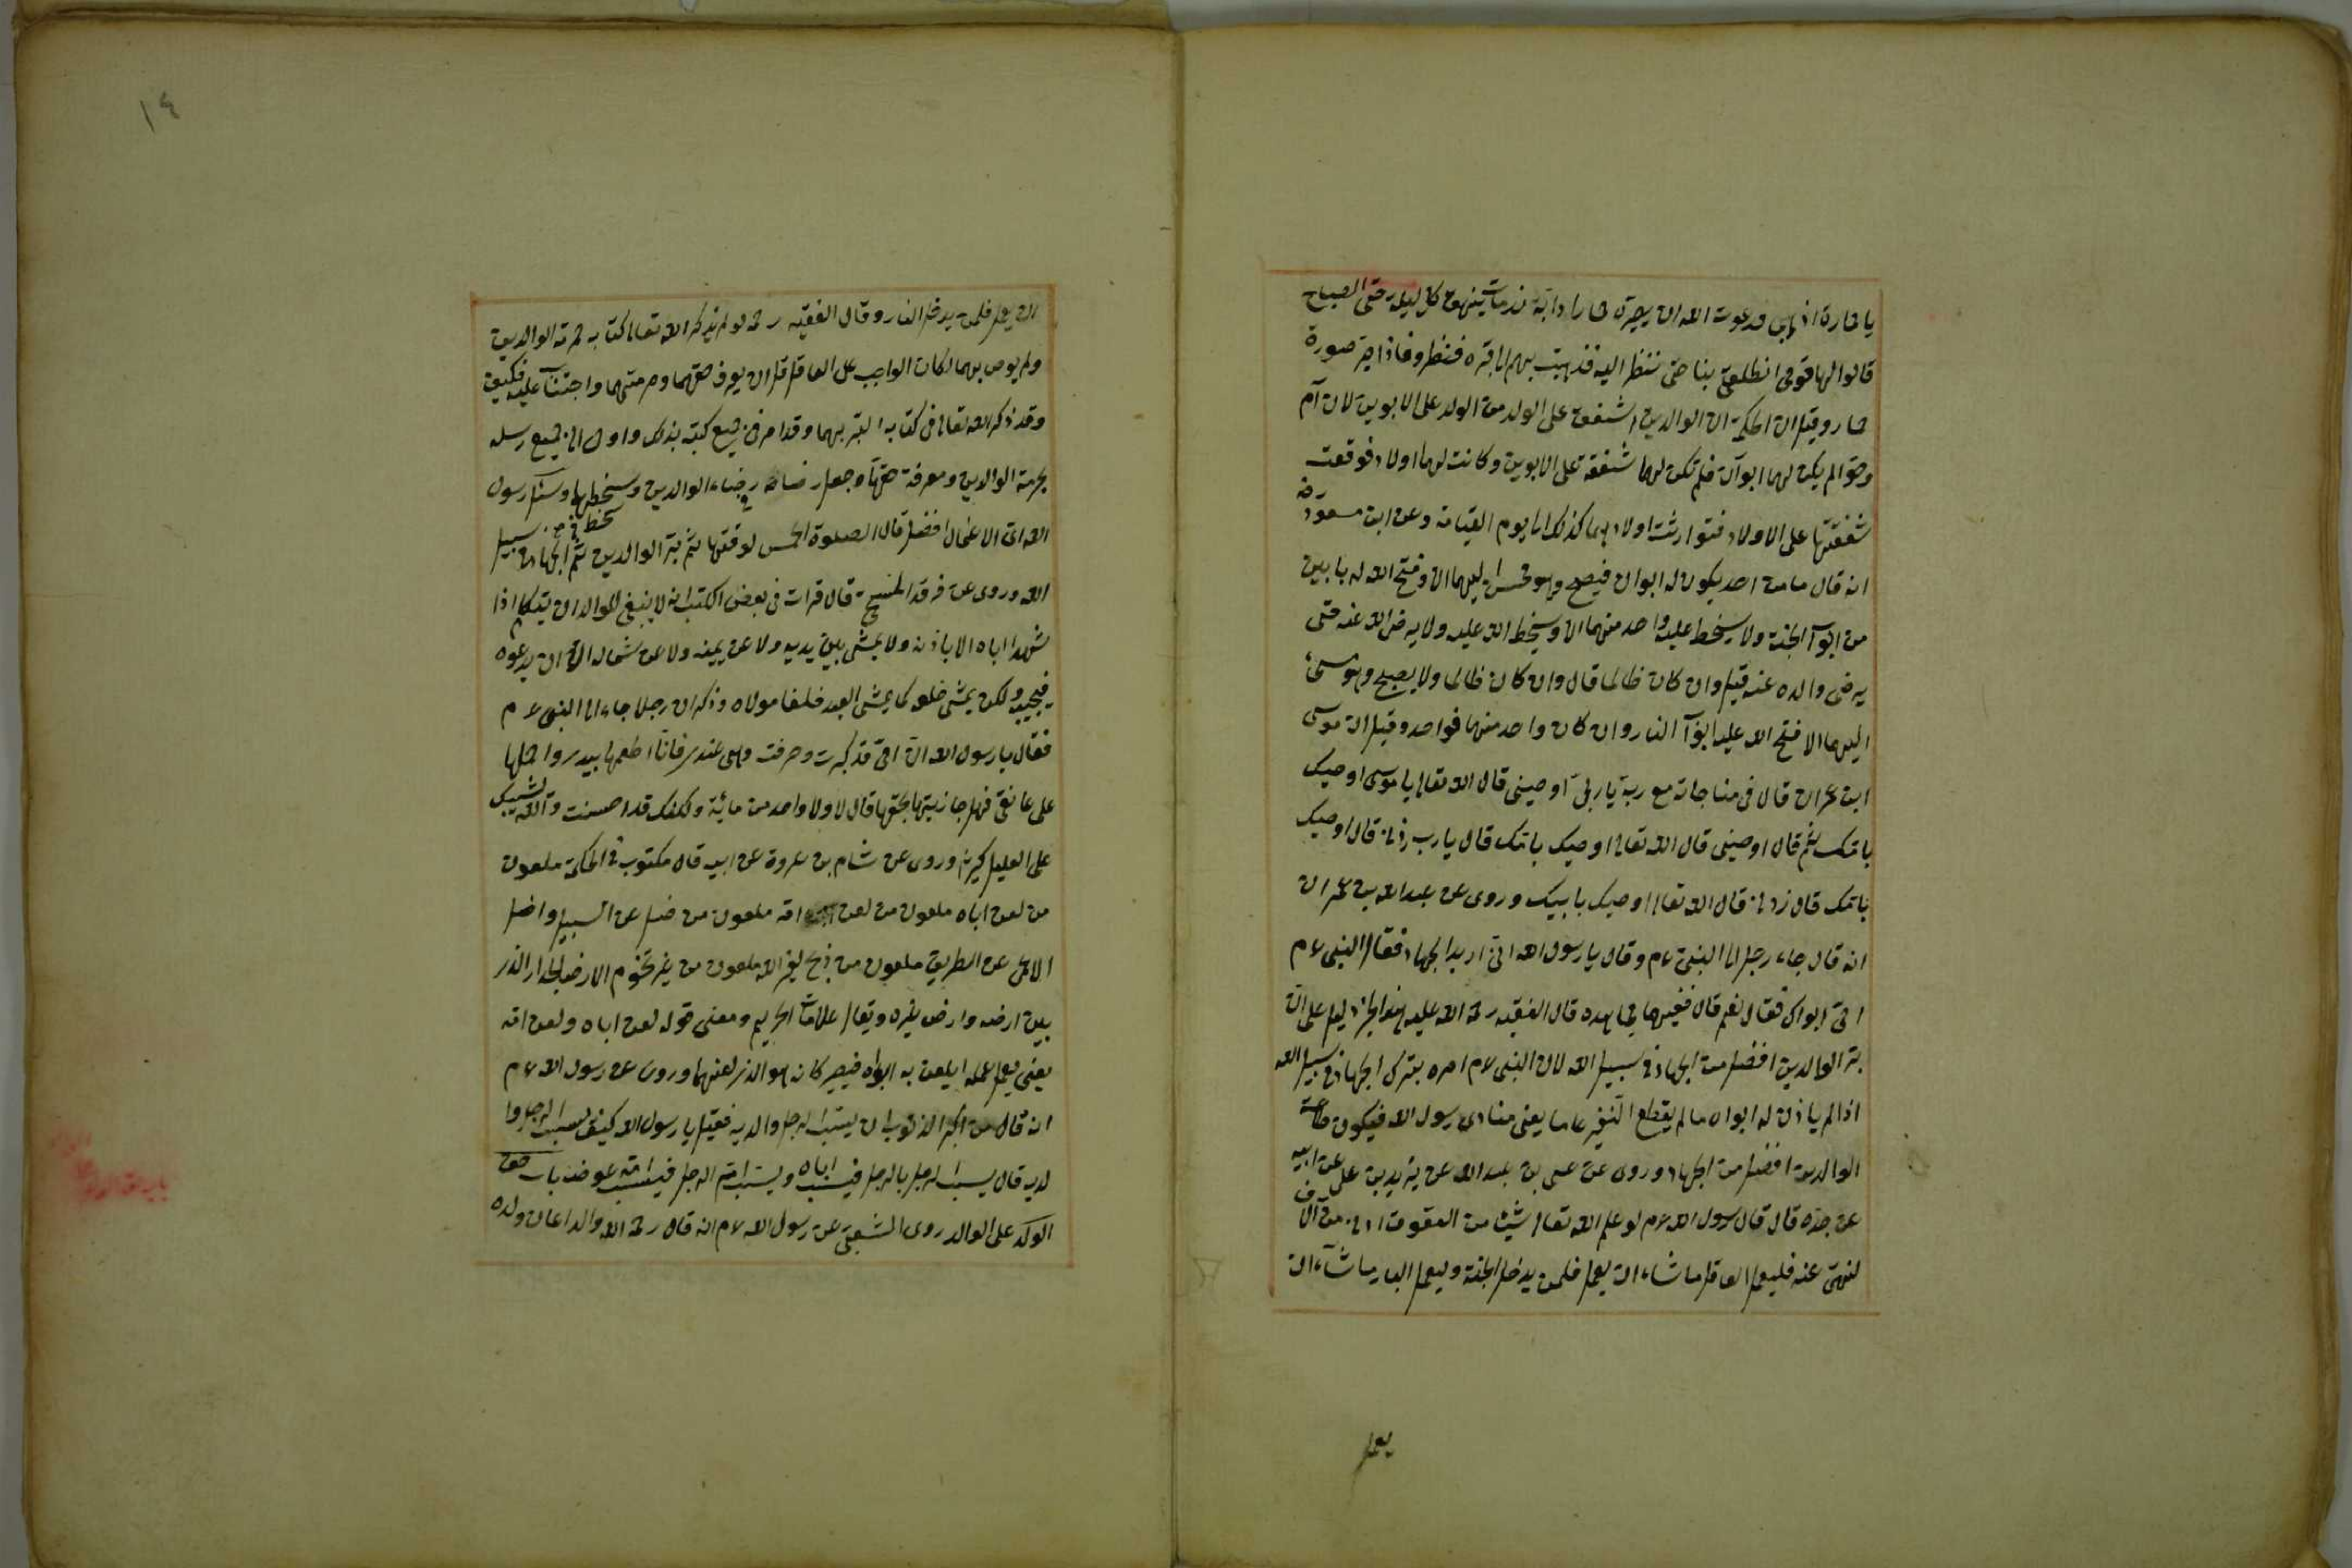 يا حمارة اذهبي فدعوت الله ان يصيره حمارا دابة فمات ينهق كل ليلة حتى الصباح
قالوا لها قومي انطلقي بنا حتى ننظر اليه فذهبت بهم الى قبره فنظروا فاذا هو صورة
حمار وقيل ان الحكمة ان الوالدين اشفق على الولد من الولد على الابوين لان آدم
وحوا لم يكن لهما ابوان فلم تكن لهما شفقة على الابوين وكانت لهما اولاد فوقعت
شفقتهما على الاولاد فتوارثت اولادهما كذلك الى يوم القيامة وعن ابن مسعود رض
انه قال ما من احد يكون له ابوان فيصبح وهو محسن اليهما الا وفتح الله له بابين
من ابواب الجنة ولا يسخط عليه واحد منهما الا ويسخط الله عليه ولا يرضى الله عنه حتى
يرضى والده عنه قيل وان كان ظالما قال وان كان ظالما ولا يصبح وهو مسئ
اليهما الا فتح الله عليه ابواب النار وان كان واحد منهما فواحد وقيل ان موسى
ابن عمران قال في مناجاته مع ربه يا ربي اوصيني قال الله تعالى يا موسى اوصيك
بامك ثم قال اوصيني قال الله تعالى اوصيك بامك قال يا رب زدني قال اوصيك
بامك قال زدني قال الله تعالى اوصيك بابيك وروى عن عبد الله بن عمران
انه قال جاء رجل الى النبي ع م وقال يا رسول الله اني اريد الجهاد فقال النبي ع م
احي ابواك فقال نعم قال ففيهما فجاهده قال الفقيه رحمة الله عليه هذا الخبر دليل على ان
بر الوالدين افضل من الجهاد في سبيل الله لان النبي ع م امره بترك الجهاد في سبيل الله
اذا لم ياذن له ابواه ما لم يقطع النفير عاما يعني منادى رسول الله فيكون طاعة
الوالدين افضل من الجهاد وروى عن عيسى بن عبد الله عن يزيد بن علي عن ابيه
عن جده قال قال رسول الله ع م لو علم الله تعالى شيئا من العقوق ادنى من الاف
لنهى عنه فليعمل العاق ما شاء ان يعمل فلن يدخل الجنة وليعمل البار ما شاء ان
يعمل
١٤
ان يعمل فلن يدخل النار وقال الفقيه رحمه لو لم يذكر الله تعالى كتابه حرمة الوالدين
ولم يوص بهما لكان الواجب على العاقل ان يعرف حقهما وحرمتهما واجتناب عليه فكيف
وقد ذكر الله تعالى في كتابه البر بهما وقد امر في جميع كتبه بذلك واوحى الى جميع رسله
بحرمة الوالدين ومعرفة حقهما وجعل رضاه في رضاء الوالدين وسخطه في سخطهما وسئل رسول
الله اي الاعمال افضل قال الصلوة الخمس لوقتها ثم بر الوالدين ثم الجهاد في سبيل
الله وروى عن فرقد السنجي قال قرات في بعض الكتب انه لا ينبغي للولد ان يتكلم اذا
شهد اباه الا باذنه ولا يمشي بين يديه ولا عن يمينه ولا عن شماله الا ان يدعوه
فيجيبه ولكن يمشي خلفه كما يمشي العبد خلف مولاه وذكر ان رجلا جاء الى النبي ع م
فقال يا رسول الله ان امي قد كبرت وخرفت وهي عندي فانا اطعمها بيدي واحملها
على عاتقي فهل جازيتها بحقها قال لا ولا واحد من مائة ولكنك قد احسنت والله يثيبك
على القليل كثيرا وروى عن هشام بن عروة عن ابيه قال مكتوب في الحكمة ملعون
من لعن اباه ملعون من لعن امه ملعون من ضل عن السبيل واضل
الاعمى عن الطريق ملعون من ذبح لغير الله ملعون من غير تخوم الارض الجدار الذي
بين ارضه وارض غيره ويقال علامات الحريم ومعنى قوله لعن اباه ولعن امه
يعني يعمل عملا يلعن به ابواه فيصير كانه هو الذي لعنهما وروى عن رسول الله ع م
انه قال من اكبر الذنوب ان يسب الرجل والديه فقيل يا رسول الله كيف يسب الرجل وا
لديه قال يسب الرجل بالرجل فيسب اباه ويسب ام الرجل فيسب امه عوضه باب حق
الولد على الوالد روى الشعبي عن رسول الله ع م انه قال رحم الله والدا اعان ولده